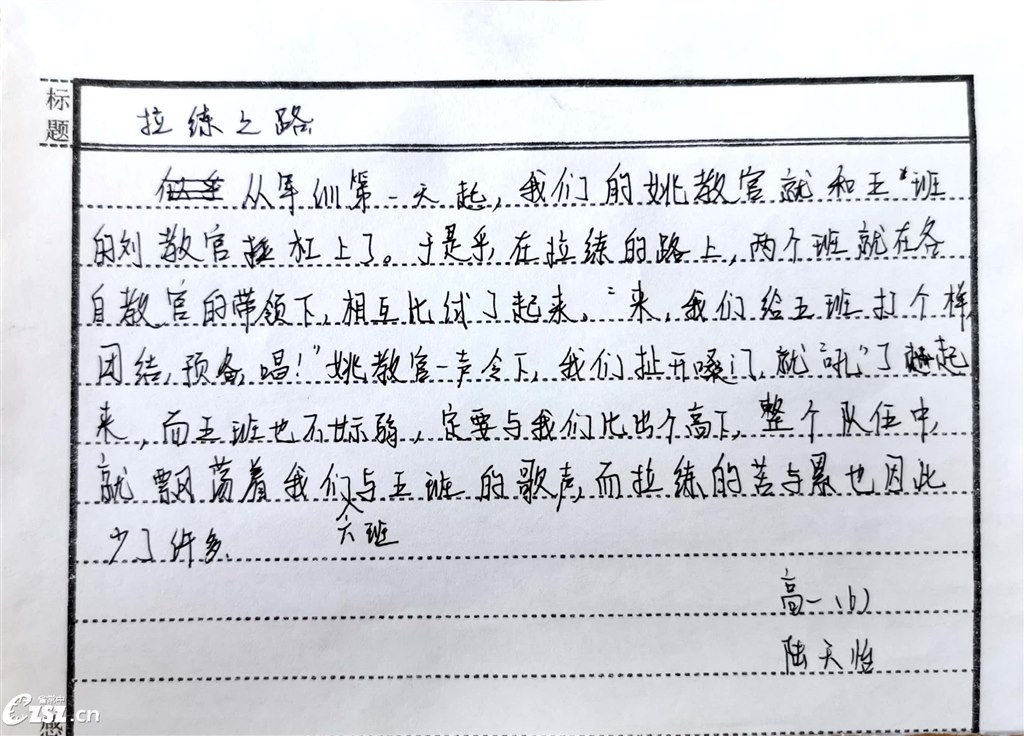 标题
拉练之路
从军训第一天起，我们的姚教官就和五班
的刘教官杠上了。于是乎，在拉练的路上，两个班就在各
自教官的带领下，相互比拼了起来。“来，我们给五班打个样，
团结，预备，唱！”姚教官一声令下，我们扯开嗓门，就“吼”了起
来，而五班也不甘示弱，定要与我们比出个高下，整个队伍中，
就飘荡着我们六班与五班的歌声，而拉练的苦与累也因此
少了许多。
高一（6）
陆天
省常中
czsz.cn
感